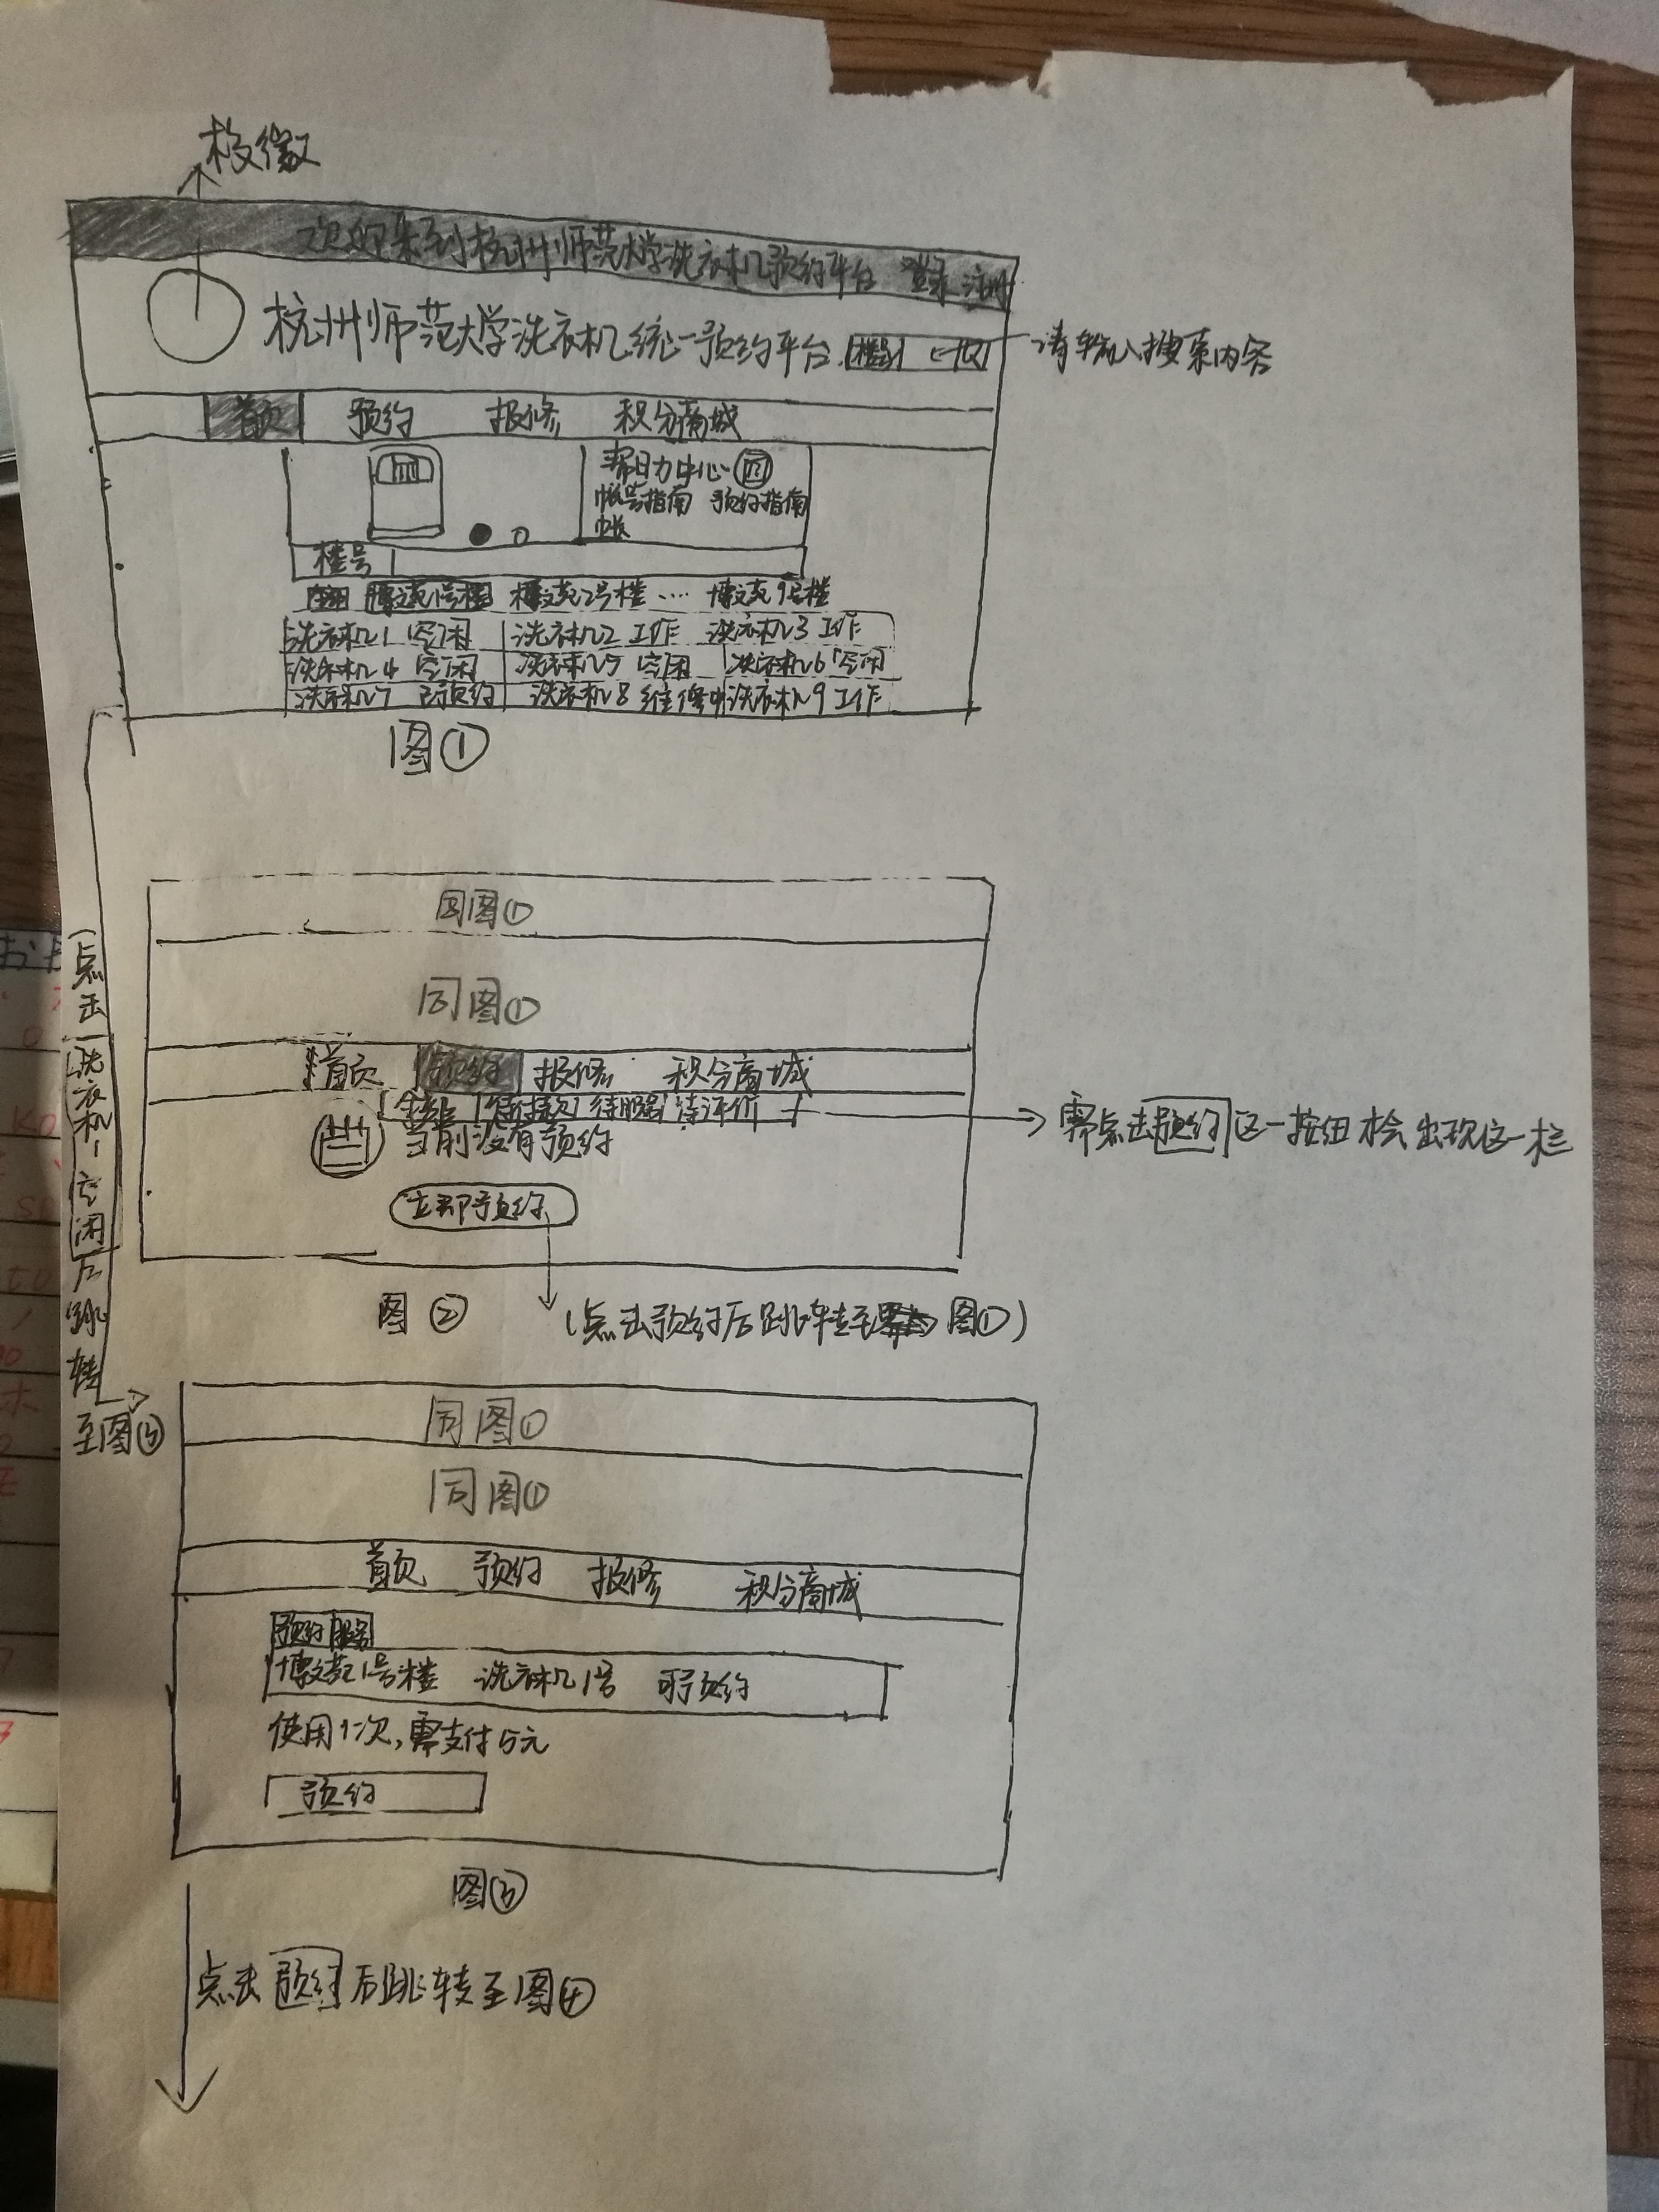 校徽
欢迎来到杭州师范大学洗衣机预约平台 登录 注册
杭州师范大学洗衣机统一预约平台 楼号
请输入搜索内容
首页 预约 报修 积分商城
帮助中心
帐号指南 预约指南
楼号
博文苑1号楼 博文苑2号楼 .... 博文苑9号楼
洗衣机1 空闲 洗衣机2 工作 洗衣机3 工作
洗衣机4 空闲 洗衣机5 空闲 洗衣机6 空闲
洗衣机7 已预约 洗衣机8 维修中 洗衣机9 工作
图①
(点击洗衣机1空闲后跳转
至图③
同图①
同图①
首页 预约 报修 积分商城
待付款 待服务 待评价
需点击预约这一按钮才会出现这一栏
当前没有预约
立即预约
图②
(点击预约后跳转至 图①)
同图①
同图①
首页 预约 报修 积分商城
预约服务
博文苑1号楼 洗衣机1号 可预约
使用1次,需支付5元
预约
图③
点击预约后跳转至图④